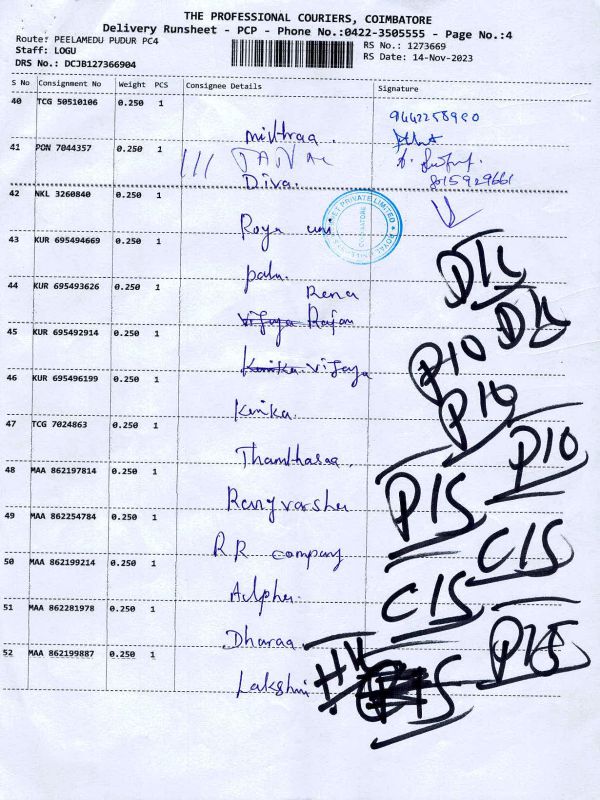 THE PROFESSIONAL COURIERS, COIMBATORE
Delivery Runsheet - PCP - Phone No.:0422-3505555 - Page No.:4
Route: PEELAMEDU PUDUR PC4
RS No.: 1273669
Staff: LOGU
RS Date: 14-Nov-2023
DRS No.: DCJB127366904
S No Consignment No Weight PCS Consignee Details Signature
40 TCG 50510106 0.250 1
9442258990
mithraa
41 PON 7044357 0.250 1
8015929661
Diva.
42 NKL 3260840 0.250 1
Roya
43 KUR 695494669 0.250 1
D14
palu.
44 KUR 695493626 0.250 1
Rena
D14
Vijaya Rajan
45 KUR 695492914 0.250 1
P10
Kenika Vijaya
46 KUR 695496199 0.250 1
P10
Kenika.
47 TCG 7024863 0.250 1
P10
Thamthasaa.
48 MAA 862197814 0.250 1
P15
Rengvarsha
49 MAA 862254784 0.250 1
C15
R.R company
50 MAA 862199214 0.250 1
C15
Alpha.
51 MAA 862281978 0.250 1
P15
Dharaa
52 MAA 862199887 0.250 1
Lakshmi